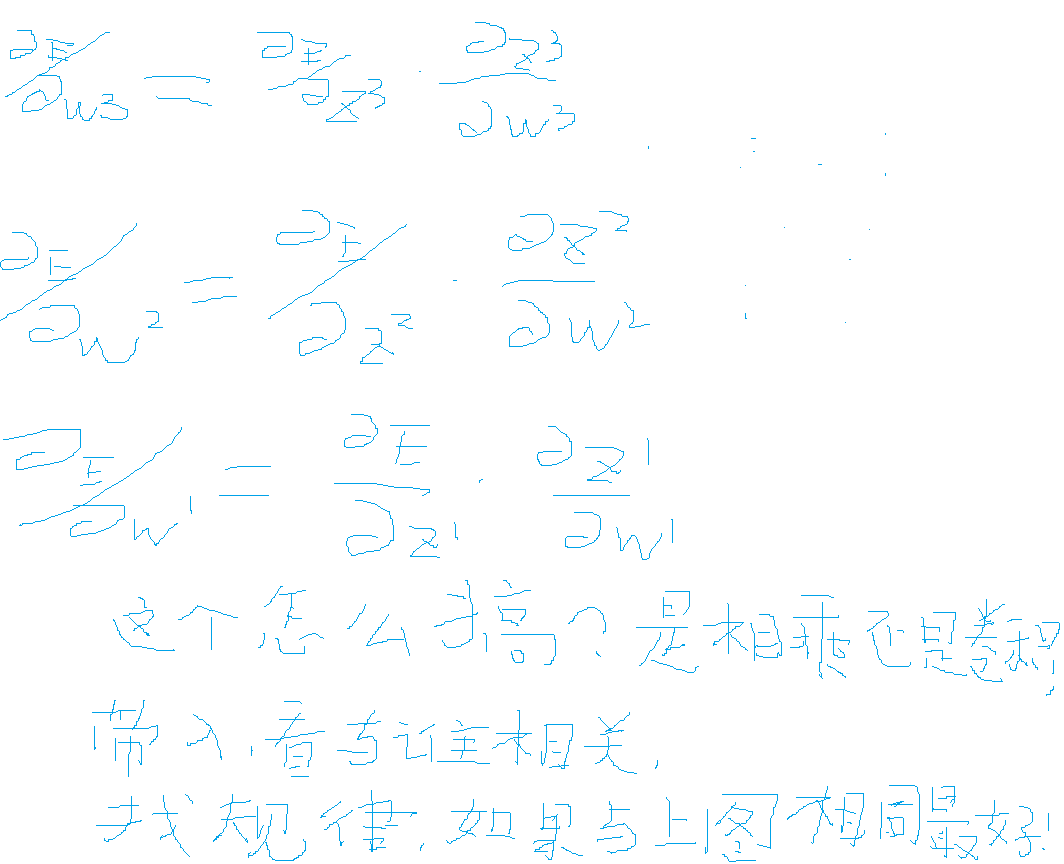 ∂E/∂w³ = ∂E/∂z³ · ∂z³/∂w³
∂E/∂w² = ∂E/∂z² · ∂z²/∂w²
∂E/∂w¹ = ∂E/∂z¹ · ∂z¹/∂w¹
这个怎么搞?是相乘还是卷积,
带入,看与谁相关.
找规律,如果与上图相同最好!